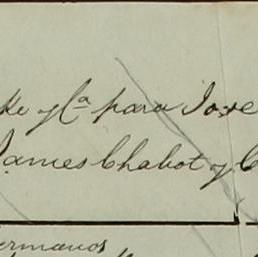 ke y Cª para Jose
James Chabot y C
ermanos